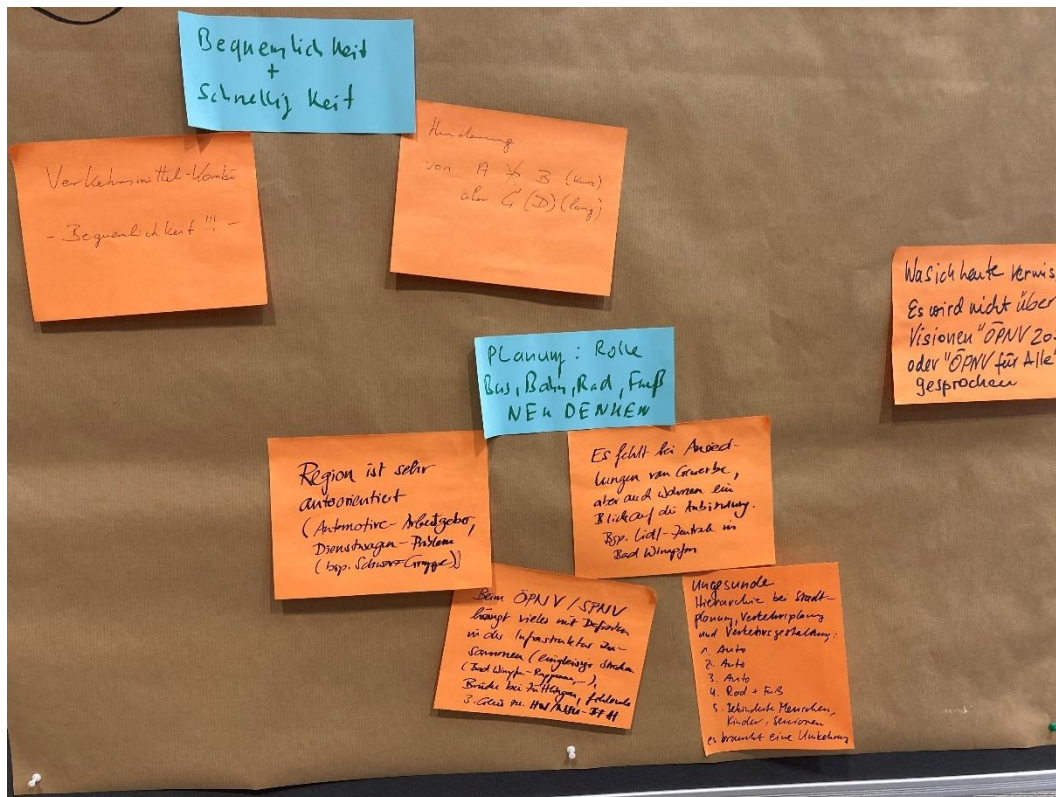 Bequemlichkeit
+
Schnelligkeit
Verkehrsmittel-
- Bequemlichkeit!!! -
von A B (kurz)
über C (D) (lang)
Was ich heute vermis
Es wird nicht über
Visionen "ÖPNV 20
oder "ÖPNV für Alle"
gesprochen
Planung: Rolle
Bus, Bahn, Rad, Fuß
NEU DENKEN
Region ist sehr
autoorientiert
(Automotive-Arbeitgeber,
Dienstwagen-Problem
(bsp. Schwarz Gruppe))
Es fehlt bei Ansied-
lungen von Gewerbe,
aber auch Wohnen ein
Blick auf die Anbindung.
Bsp. Lidl-Zentrale in
Bad Wimpfen
Beim ÖPNV/SPNV
hängt vieles mit Defiziten
in der Infrastruktur zu-
sammen (eingleisige Strecken
(Bad Wimpfen-
Brücke bei Züttlingen, fehlendes
3. Gleis
Ungesunde
Hierarchie bei Stadt-
planung, Verkehrsplanung
und Verkehrsgestaltung:
1. Auto
2. Auto
3. Auto
4. Rad + Fuß
5. Behinderte Menschen,
Kinder, Senioren
es braucht eine Umkehrung